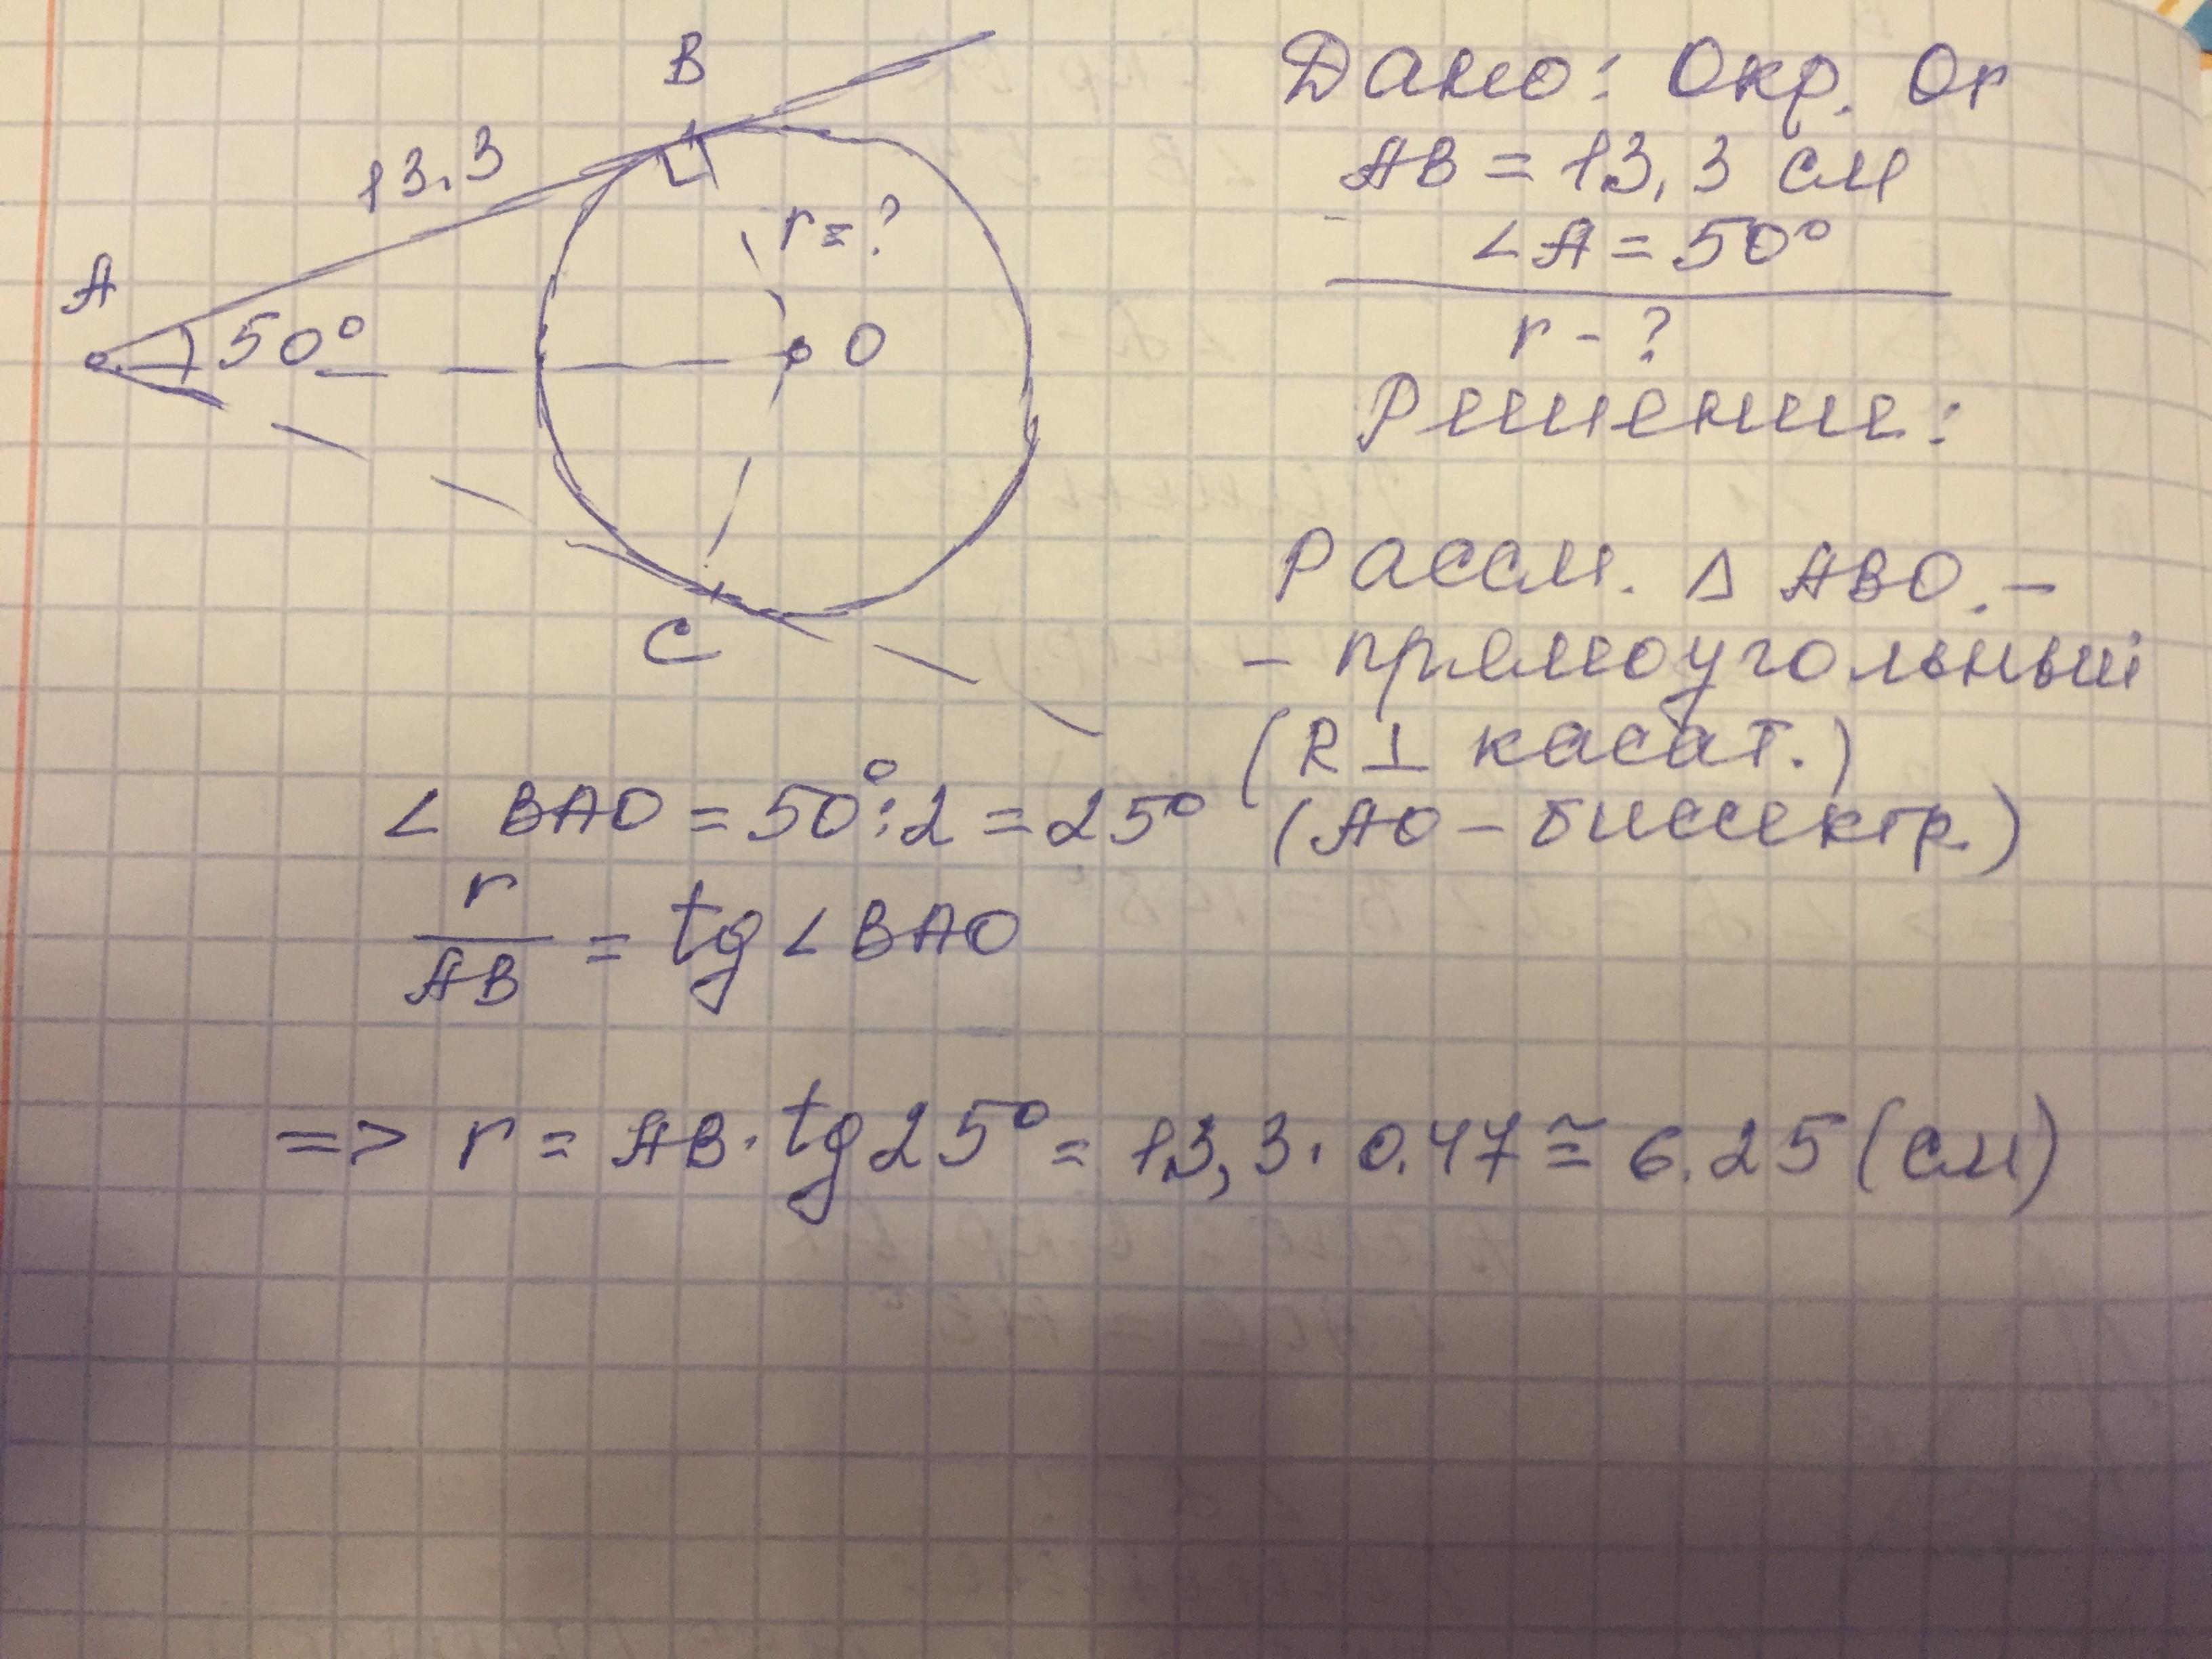 B
13.3
r = ?
A
50°
O
C
Дано: Окр. Or
AB = 13,3 см
∠A = 50°
r - ?
Решение:
Рассм. Δ ABO. -
- прямоугольный
(R ⊥ касат.)
∠ BAO = 50° : 2 = 25° (AO - биссектр.)
r
AB = tg ∠ BAO
=> r = AB · tg 25° = 13,3 · 0.47 ≅ 6.25 (см)